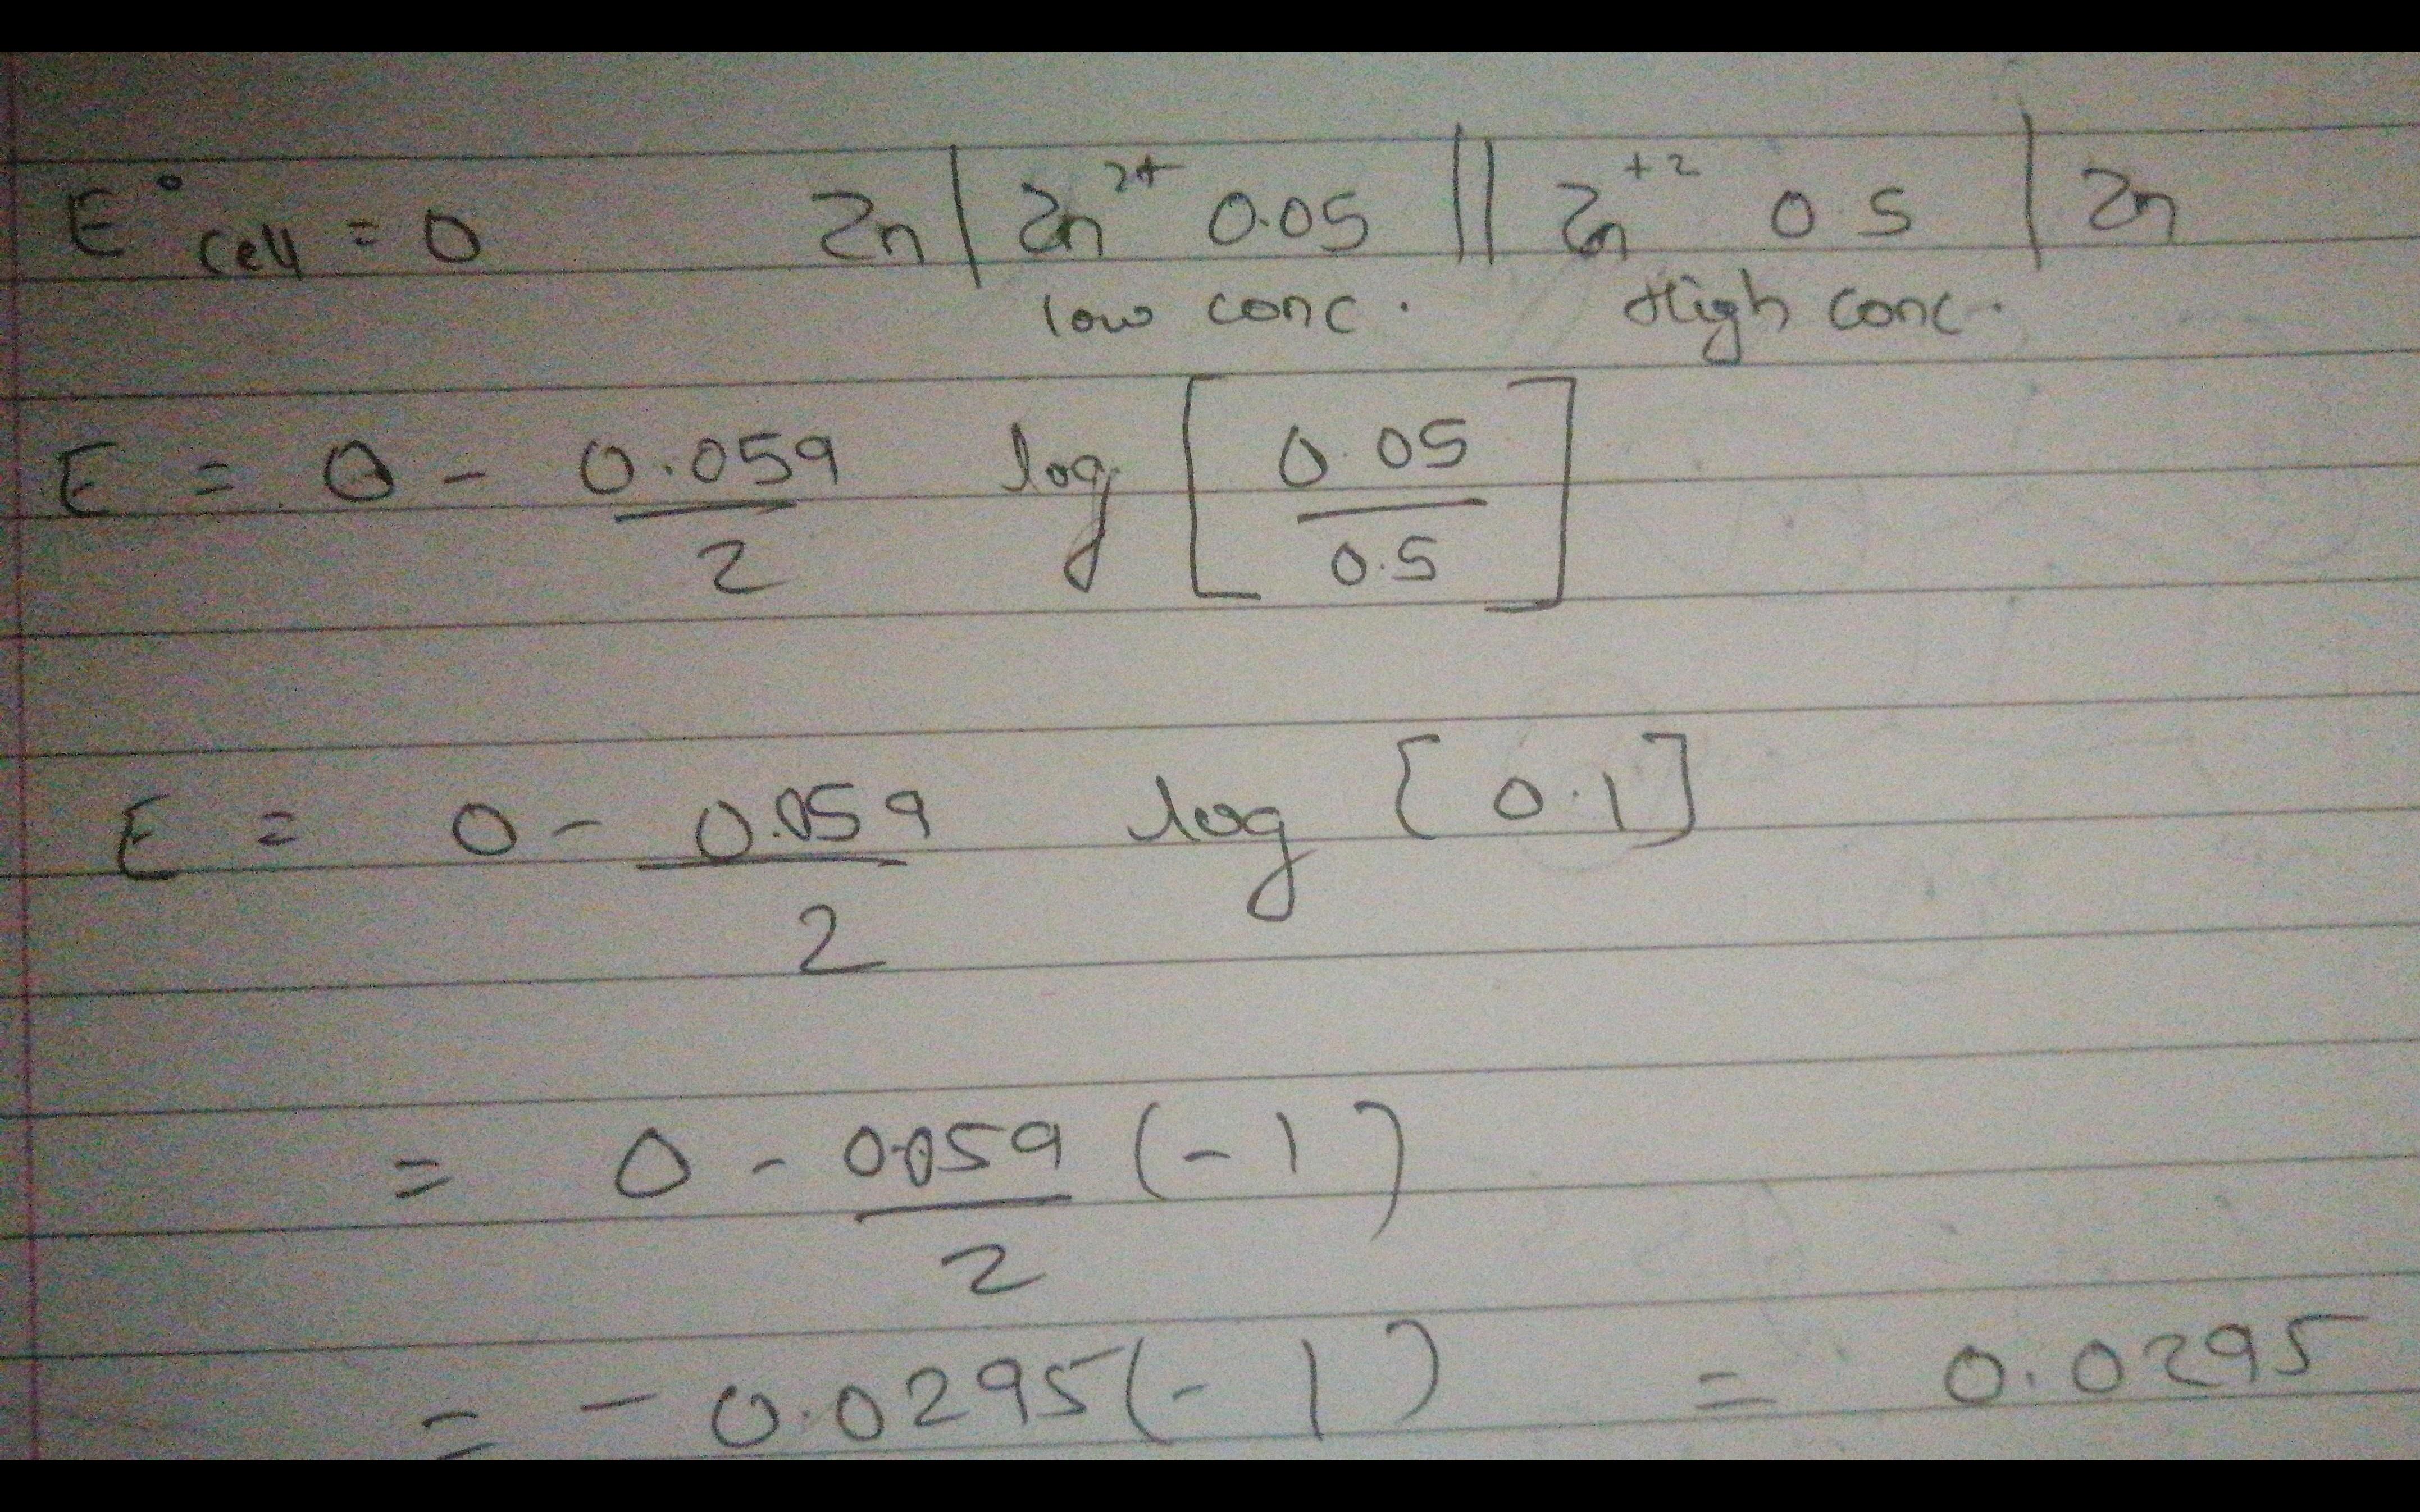 E°cell = 0 Zn | Zn²⁺ 0.05 || Zn⁺² 0.5 | Zn
low conc. High conc.
E = 0 - 0.059/2 log [0.05/0.5]
E = 0 - 0.059/2 log [0.1]
= 0 - 0.059/2 (-1)
= - 0.0295(-1) = 0.0295